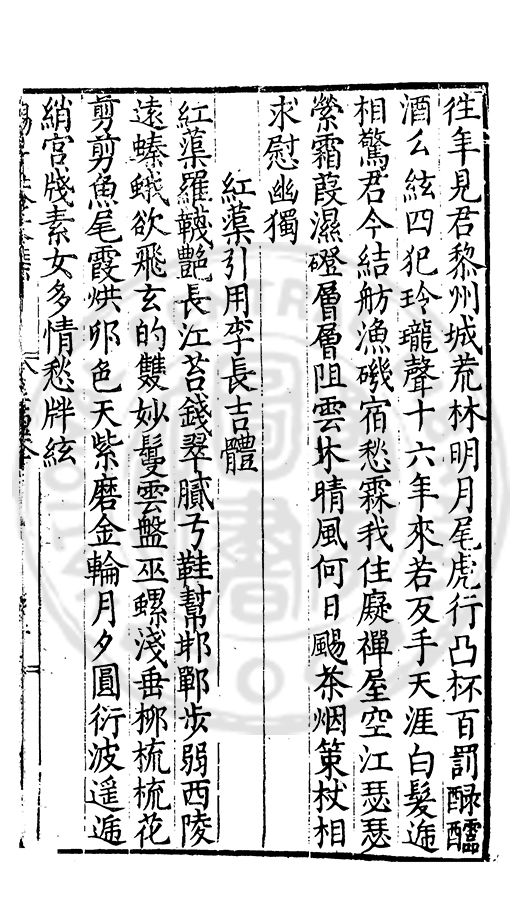 徃年見君黎州城荒林明月尾虎行凸杯百罰醁醽
酒么絃四犯玲瓏聲十六年來若反手天涯白髮迤
相驚君今結舫漁磯宿愁霖我住礙禪屋空江瑟瑟
縈霜葭濕磴層層阻雲木晴風何日颺茶烟策杖相
求慰幽獨
紅蕖引用李長吉體
紅蕖羅韈艷長江苔錢翠膩弓鞋幫邯鄲步弱西陵
遠螓蛾欲飛玄的雙妙鬘雲盤巫螺淺垂柳梳梳花
剪剪魚尾霞烘卯色天紫磨金輪月夕圓衍波遥遞
綃宮牋素女多情愁牉絃